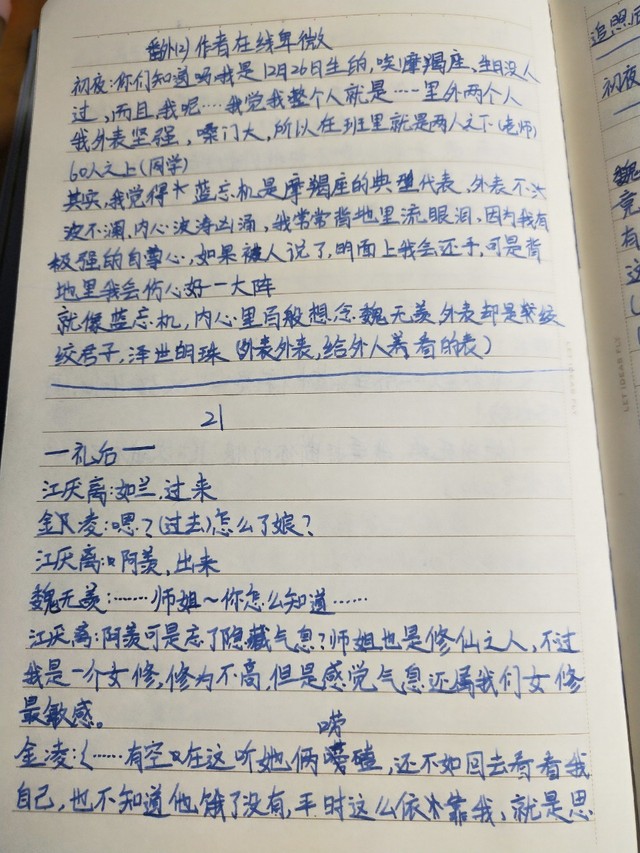 番外(2)作者在线卑微
初夜:你们知道吗我是12月26日生的,唉摩羯座、生日没人
过,而且,我呢…我觉我整个人就是……里外两个人
我外表坚强,嗓门大,所以在班里就是两人之下(老师)
60人之上(同学)
其实,我觉得 蓝忘机是摩羯座的典型代表,外表不
波不澜,内心波涛汹涌,我常常背地里流眼泪,因为我有
极强的自尊心,如果被人说了,明面上我会还手,可是背
地里我会伤心好一大阵
就像蓝忘机,内心里百般想念魏无羡,外表却是皎皎
君子,泽世明珠(外表外表,给外人看的表)
21
一礼后一
江厌离:如兰,过来
金凌:嗯?(过去)怎么了娘?
江厌离:阿羡,出来
魏无羡:……师姐~你怎么知道……
江厌离:阿羡可是忘了隐藏气息?师姐也是修仙之人,不过
我是一个女修,修为不高,但是感觉气息还属我们女修
最敏感。
唠
金凌:(……有空在这听她俩磕,还不如回去看看我
自己,也不知道他饿了没有,平时这么依靠我,就是思
追照
初夜
魏
有
这
LET IDEAS FLY